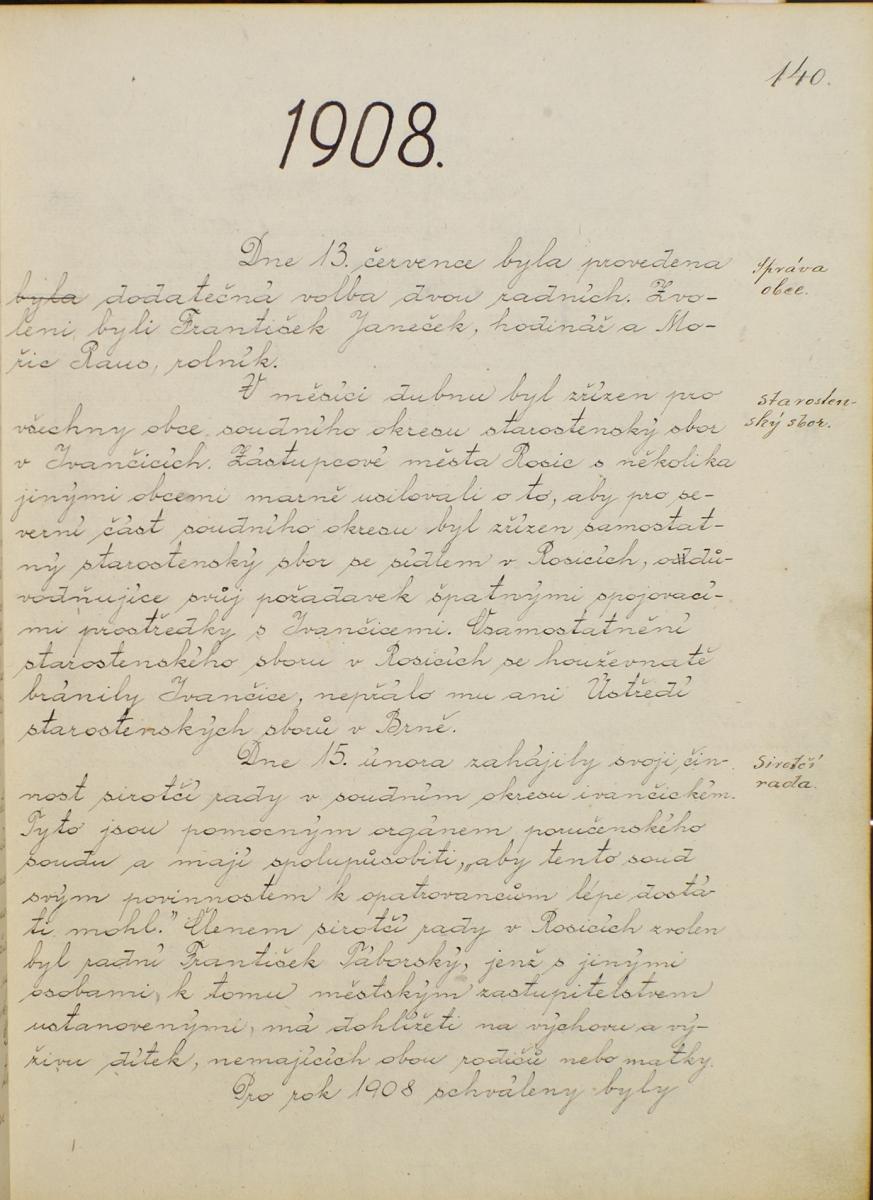 140.
1908.
Dne 13. července byla provedena
Správa
obce.
byla dodatečná volba dvou radních. Zvo-
leni byli František Janeček, hodinář a Mo-
řic Raus, rolník.
V měsíci dubnu byl zřízen pro
starosten-
ský sbor.
všechny obce soudního okresu starostenský sbor
v Ivančicích. Zástupcové města Rosic s několika
jinými obcemi marně usilovali o to, aby pro se-
verní část soudního okresu byl zřízen samostat-
ný starostenský sbor se sídlem v Rosicích, odů-
vodňujíce svůj požadavek špatnými spojovací-
mi prostředky s Ivančicemi. Osamostatnění
starostenského sboru v Rosicích se houževnatě
bránily Ivančice, nepřálo mu ani Ústředí
starostenských sborů v Brně.
Dne 15. února zahájily svoji čin-
Sirotčí
rada.
nost sirotčí rady v soudním okresu ivančickém.
Tyto jsou pomocným orgánem poručenského
soudu a mají spolupůsobiti, „aby tento soud
svým povinnostem k opatrovancům lépe dostá-
ti mohl." Členem sirotčí rady v Rosicích zvolen
byl radní František Táborský, jenž s jinými
osobami, k tomu městským zastupitelstvem
ustanovenými, má dohlížeti na výchovu a vý-
živu dítek, nemajících obou rodičů nebo matky.
Pro rok 1908 schváleny byly